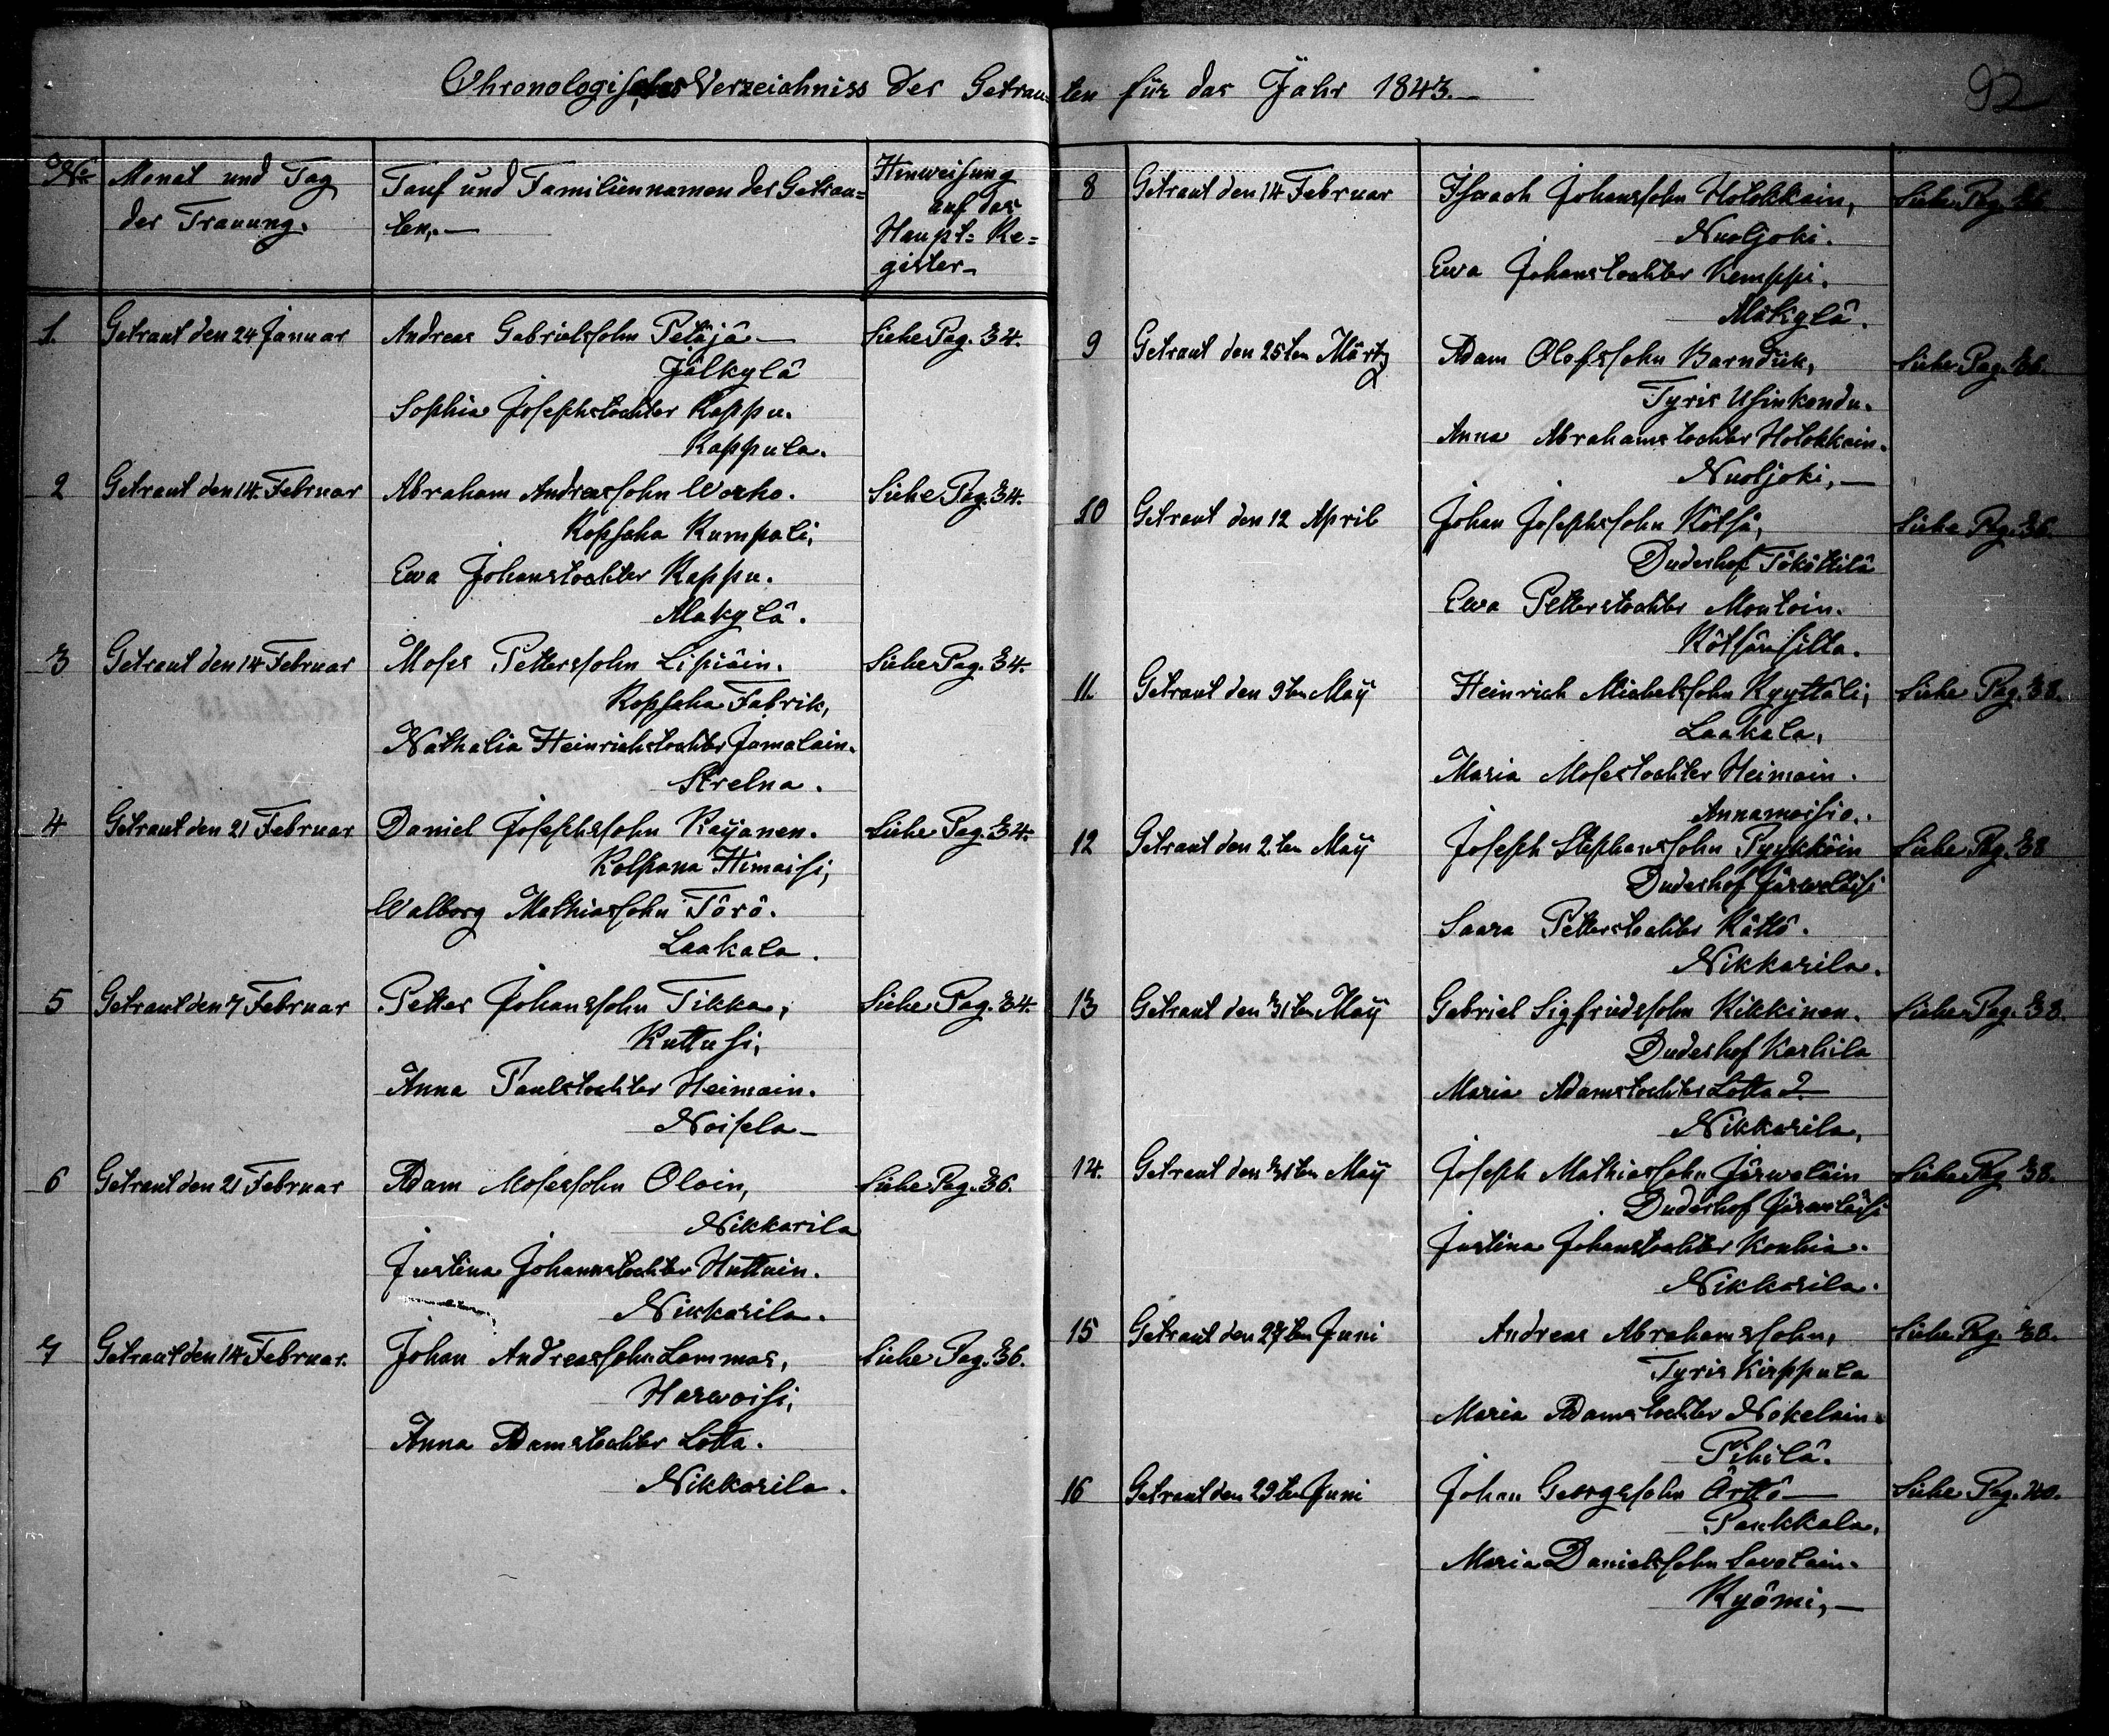 Chronologisches Verzeichniss der Getrau=ten für das Jahr 1843.—
92
No
Monat und Tag
der Trauung.
Tauf und Familiennamen der Getrau=
ten.—
Hinweisung
auf das
Haupt=Re=
gister—
1. Getraut den 24 Januar Andreas Gabrielssohn Petäjä— Siehe Pag. 34.
Jälkylä
Sophia Josephstochter Kappu.
Kappula.
2 Getraut den 14. Februar Abraham Andreassohn Worho. Siehe Pag. 34.
Ropscha Kumpoli,
Ewa Johanstochter Kappu.
Mäkylä.
3 Getraut den 14 Februar Moses Petterssohn Lipiäin. Siehe Pag. 34.
Ropscha Fabrik,
Nathalia Heinrichstochter Jamalain.
Strelna.
4 Getraut den 21 Februar Daniel Josephssohn Kayanen. Siehe Pag. 34.
Kolpana Himaisi,
Walborg Mathiassohn Törö.
Laakala.
5 Getraut den 7 Februar Petter Johanssohn Tikka, Siehe Pag. 34.
Kuttusi,
Anna Paulstochter Heimain.
Noisela—
6 Getraut den 21 Februar Adam Mosessohn Oloin, Siehe Pag. 36.
Nikkarila
Justina Johannstochter Huttuin.
Nikkarila.
7 Getraut den 14 Februar. Johan Andreassohn Lammas, Siehe Pag. 36.
Harwoisi,
Anna Adamstochter Lotta.
Nikkarila.
8 Getraut den 14 Februar Isaach Johanssohn Holokkain, Siehe Pag. 36
Nuoljoki.
Ewa Johanstochter Kemppi.
Mäkylä.
9 Getraut den 25ten Märtz Adam Olofssohn Barndük, Siehe Pag. 36.
Tyris Usinkondu.
Anna Abrahamstochter Holokkain.
Nuoljoki,—
10 Getraut den 12 April Johan Josephssohn Kötsä, Siehe Pag. 36.
Duderhof Tököttilä
Ewa Petterstochter Montoin.
Kötsänsilta.
11 Getraut den 9ten May Heinrich Michelssohn Kyyttäli, Siehe Pag. 38.
Laakala,
Maria Mosestochter Heimain.
Annamoisio.
12 Getraut den 2ten May Joseph Stephanssohn Pyykköin Siehe Pag. 38
Duderhof Järweläisi
Saara Petterstochter Kättö.
Nikkarila.
13 Getraut den 31ten May Gabriel Sigfridssohn Kikkinen. Siehe Pag. 38.
Duderhof Karhila
Maria Adamstochter Lotta 2.
Nikkarila,
14. Getraut den 31ten May Joseph Mathiassohn Järweläin Siehe Pag. 38.
Duderhof Järweläisi
Justina Johanstochter Konhia.
Nikkarila.
15 Getraut den 27ten Juni Andreas Abrahamssohn, Siehe Pag. 38.
Tyris Kirppula
Maria Adamstochter Nokelain.
Pihilä.
16 Getraut den 29ten Juni Johan Georgssohn Örttö— Siehe Pag. 40.
Paukkala,
Maria Danielssohn Savolain.
Kyömi,—